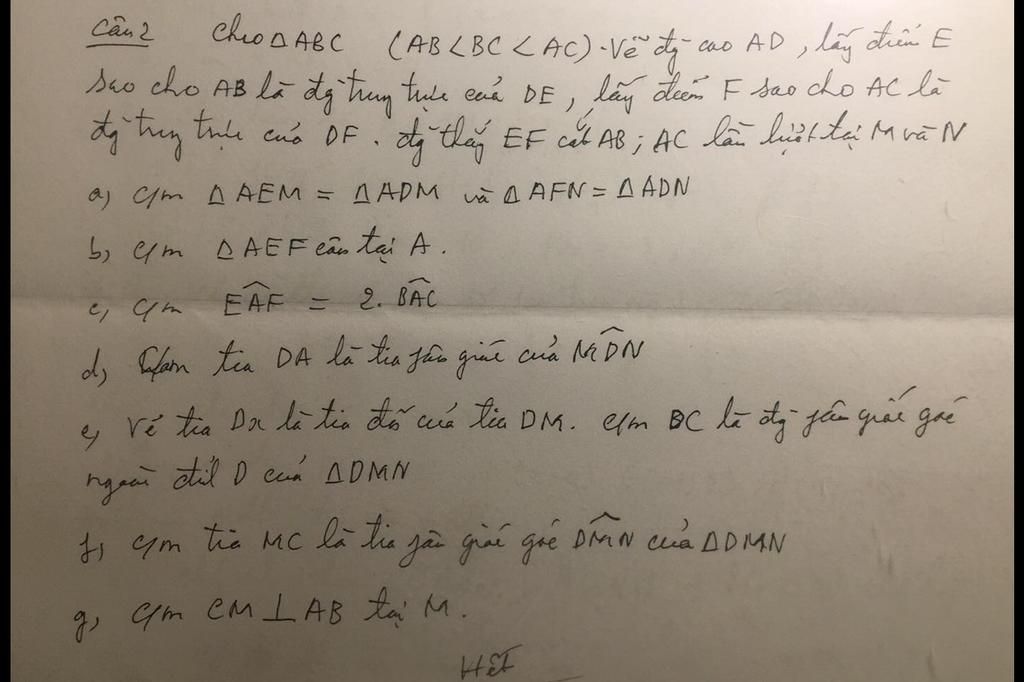 Câu 2 Cho △ABC (AB < BC < AC). Vẽ đg cao AD, lấy điểm E
sao cho AB là đg trung trực của DE, lấy điểm F sao cho AC là
đg trung trực của DF. đg thẳng EF cắt AB; AC lần lượt tại M và N
a, C/m △AEM = △ADM và △AFN = △ADN
b, C/m △AEF cân tại A.
c, C/m EÂF = 2. BÂC
d, C/m tia DA là tia phân giác của MD̂N
e, Vẽ tia Dx là tia đối của tia DM. C/m BC là đg phân giác góc
ngoài đỉnh D của △DMN
f, C/m tia MC là tia phân giác góc DM̂N của △DMN
g, C/m CM ⊥ AB tại M.
Hết